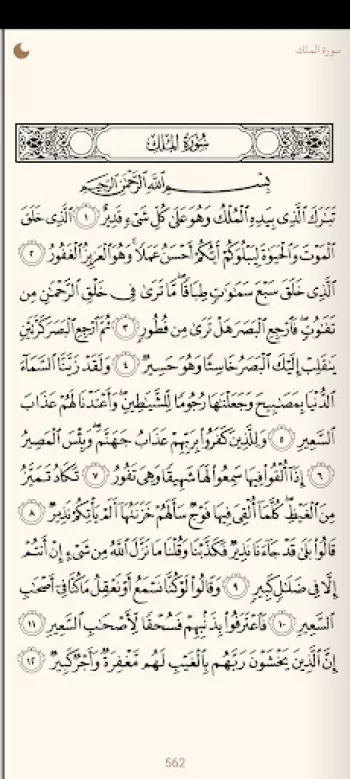 سورة الملك
سُورَةُ المُلْكِ
بِسْمِ اللَّهِ الرَّحْمَٰنِ الرَّحِيمِ
تَبَٰرَكَ الَّذِى بِيَدِهِ الْمُلْكُ وَهُوَ عَلَىٰ كُلِّ شَىْءٍ قَدِيرٌ ١ الَّذِى خَلَقَ
الْمَوْتَ وَالْحَيَوٰةَ لِيَبْلُوَكُمْ أَيُّكُمْ أَحْسَنُ عَمَلًا ۚ وَهُوَ الْعَزِيزُ الْغَفُورُ ٢
الَّذِى خَلَقَ سَبْعَ سَمَٰوَٰتٍ طِبَاقًا ۖ مَّا تَرَىٰ فِى خَلْقِ الرَّحْمَٰنِ مِن
تَفَٰوُتٍ ۖ فَارْجِعِ الْبَصَرَ هَلْ تَرَىٰ مِن فُطُورٍ ٣ ثُمَّ ارْجِعِ الْبَصَرَ كَرَّتَيْنِ
يَنقَلِبْ إِلَيْكَ الْبَصَرُ خَاسِئًا وَهُوَ حَسِيرٌ ٤ وَلَقَدْ زَيَّنَّا السَّمَآءَ
الدُّنْيَا بِمَصَٰبِيحَ وَجَعَلْنَٰهَا رُجُومًا لِّلشَّيَٰطِينِ ۖ وَأَعْتَدْنَا لَهُمْ عَذَابَ
السَّعِيرِ ٥ وَلِلَّذِينَ كَفَرُوا۟ بِرَبِّهِمْ عَذَابُ جَهَنَّمَ ۖ وَبِئْسَ الْمَصِيرُ
٦ إِذَآ أُلْقُوا۟ فِيهَا سَمِعُوا۟ لَهَا شَهِيقًا وَهِىَ تَفُورُ ٧ تَكَادُ تَمَيَّزُ
مِنَ الْغَيْظِ ۖ كُلَّمَآ أُلْقِىَ فِيهَا فَوْجٌ سَأَلَهُمْ خَزَنَتُهَآ أَلَمْ يَأْتِكُمْ نَذِيرٌ ٨
قَالُوا۟ بَلَىٰ قَدْ جَآءَنَا نَذِيرٌ فَكَذَّبْنَا وَقُلْنَا مَا نَزَّلَ اللَّهُ مِن شَىْءٍ إِنْ أَنتُمْ
إِلَّا فِى ضَلَٰلٍ كَبِيرٍ ٩ وَقَالُوا۟ لَوْ كُنَّا نَسْمَعُ أَوْ نَعْقِلُ مَا كُنَّا فِىٓ أَصْحَٰبِ
السَّعِيرِ ١٠ فَاعْتَرَفُوا۟ بِذَنۢبِهِمْ فَسُحْقًا لِّأَصْحَٰبِ السَّعِيرِ ١١
إِنَّ الَّذِينَ يَخْشَوْنَ رَبَّهُم بِالْغَيْبِ لَهُم مَّغْفِرَةٌ وَأَجْرٌ كَبِيرٌ ١٢
562